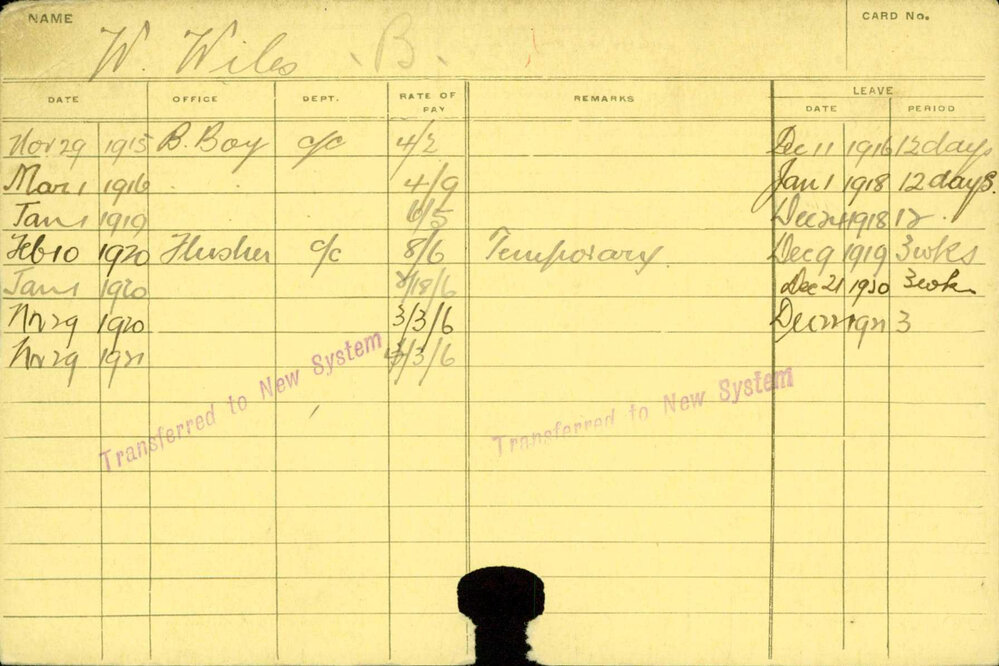 NAME CARD No.
W. Wiles . B.
LEAVE
DATE OFFICE DEPT. RATE OF PAY REMARKS DATE PERIOD
Nov 29 1915 B. Boy c/c 4/2 Dec 11 1916 12 days
Mar 1 1916 . . 4/9 Jan 1 1918 12 days.
Jan 1 1919 Dec 24 1918 12 .
Feb 10 1920 Flusher c/c 8/6 Temporary. Dec 9 1919 3 wks
Jan 1 1920 /18/6 Dec 21 1920 3 wks
Nov 29 1920 3/3/6 Dec 22 1921 3
Nov 29 1921 /3/6
Transferred to New System
Transferred to New System